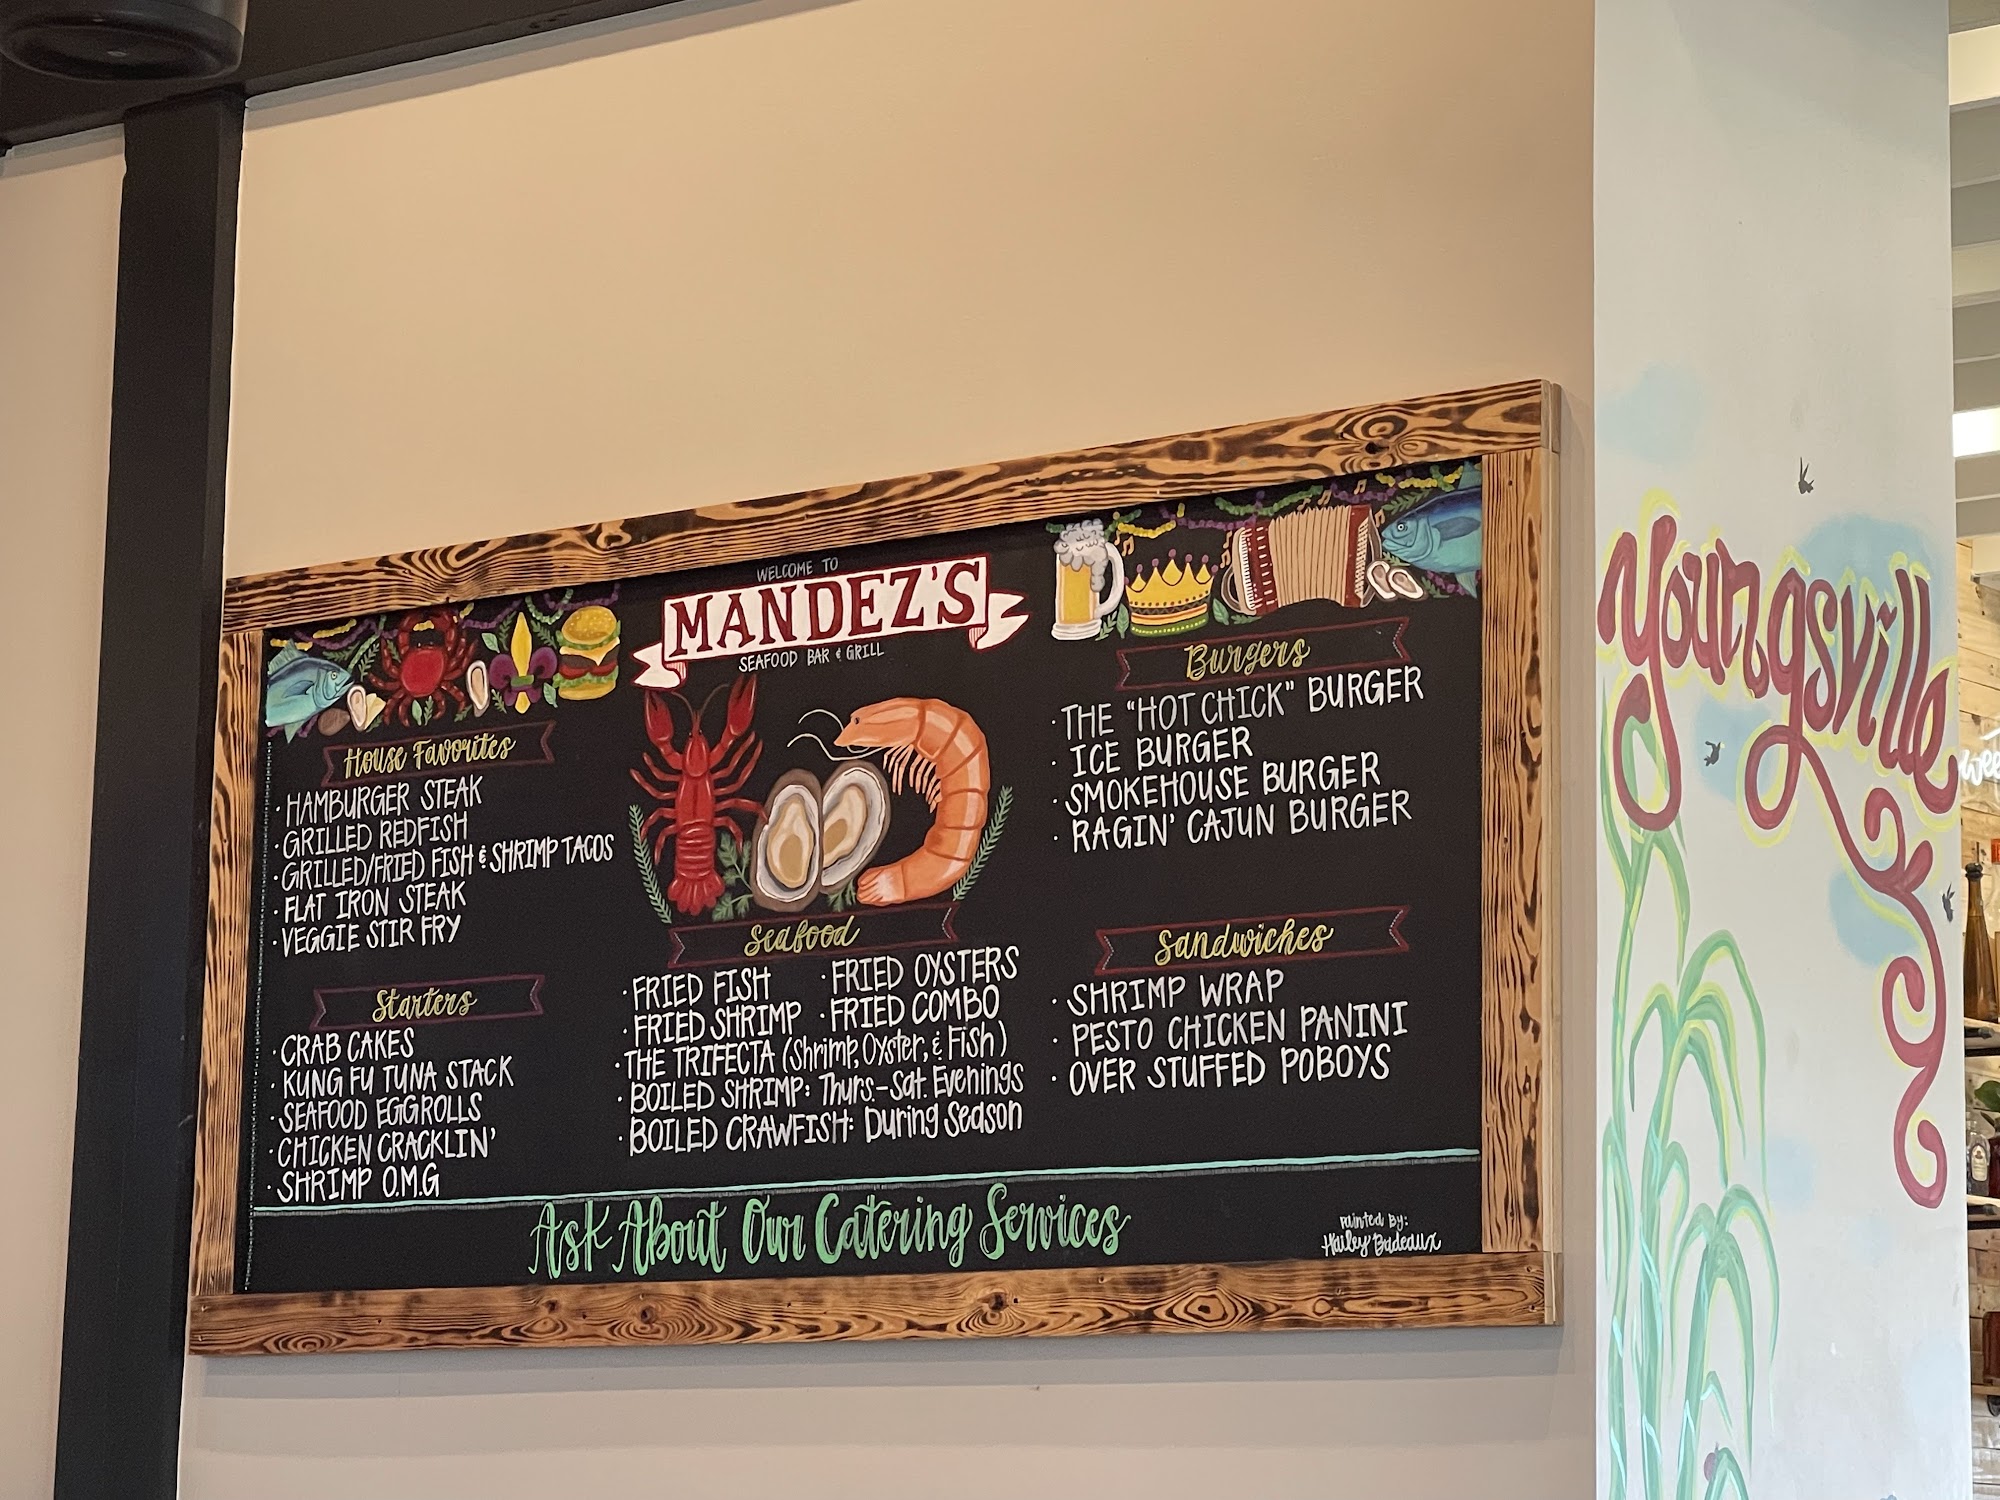 WELCOME TO
MANDEZ'S
SEAFOOD BAR & GRILL
House Favorites
· HAMBURGER STEAK
· GRILLED REDFISH
· GRILLED/FRIED FISH & SHRIMP TACOS
· FLAT IRON STEAK
· VEGGIE STIR FRY
Starters
· CRAB CAKES
· KUNG FU TUNA STACK
· SEAFOOD EGGROLLS
· CHICKEN CRACKLIN'
· SHRIMP O.M.G
Seafood
· FRIED FISH · FRIED OYSTERS
· FRIED SHRIMP · FRIED COMBO
· THE TRIFECTA (Shrimp, Oyster, & Fish)
· BOILED SHRIMP: Thurs.-Sat. Evenings
· BOILED CRAWFISH: During Season
Burgers
· THE "HOT CHICK" BURGER
· ICE BURGER
· SMOKEHOUSE BURGER
· RAGIN' CAJUN BURGER
Sandwiches
· SHRIMP WRAP
· PESTO CHICKEN PANINI
· OVER STUFFED POBOYS
Ask About Our Catering Services
Painted By:
Hailey Badeaux
Youngsville